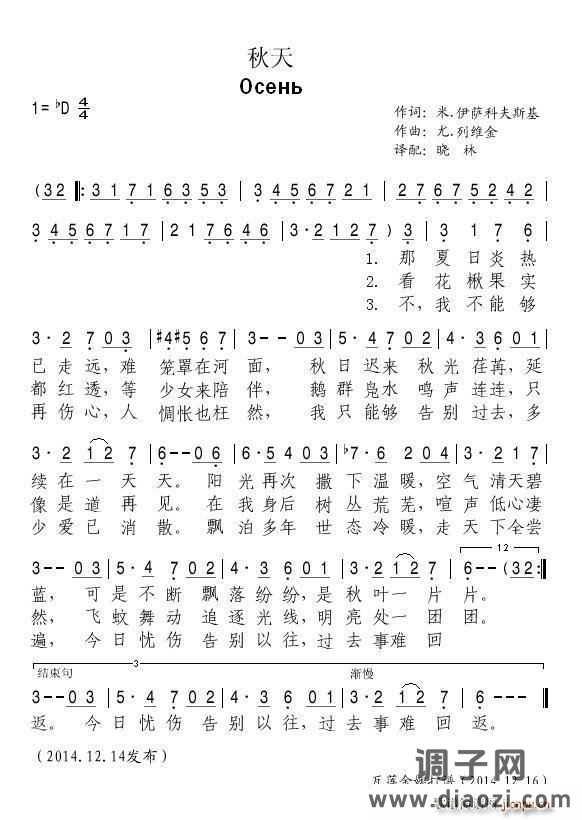 秋天
Осень
1=♭D 4/4
作词：米.伊萨科夫斯基
作曲：尤.列维金
译配：晓 林
(3 2 ‖: 3 1 7 1 6 3 5 3 | 3 4 5 6 7 2 1 | 2 7 6 7 5 2 4 2 |
3 4 5 6 7 1 7 | 2 1 7 6 4 6 | 3·2 1 2 7 ) 3 | 3 1 7 6
1. 那 夏 日 炎 热
2. 看 花 楸 果 实
3. 不，我 不 能 够
3·2 7 0 3 | #4 #5 6 7 | 3 - - 0 3 | 5·4 7 0 2 | 4·3 6 0 1
已 走 远，难 笼 罩 在 河 面， 秋 日 迟 来 秋 光 荏 苒，延
都 红 透，等 少 女 来 陪 伴， 鹅 群 凫 水 鸣 声 连 连，只
再 伤 心，人 惆 怅 也 枉 然， 我 只 能 够 告 别 过 去，多
3·2 1 2 7 | 6 - - 0 6 | 6·5 4 0 3 | ♭7·6 2 0 4 | 3·2 1 7
续 在 一 天 天。 阳 光 再 次 撒 下 温 暖，空 气 清 天 碧
像 是 道 再 见。 在 我 身 后 树 丛 荒 芜，喧 声 低 心 凄
少 爱 已 消 散。 飘 泊 多 年 世 态 冷 暖，走 天 下 全 尝
12
3 - - 0 3 | 5·4 7 0 2 | 4·3 6 0 1 | 3·2 1 2 7 | 6 - - (3 2 :‖
蓝， 可 是 不 断 飘 落 纷 纷，是 秋 叶 一 片 片。
然， 飞 蚊 舞 动 追 逐 光 线，明 亮 处 一 团 团。
遍， 今 日 忧 伤 告 别 以 往，过 去 事 难 回
结束句 3 渐慢
3 - - 0 3 | 5·4 7 0 2 | 4·3 6 0 1 | 3·2 1 2 7 | 6 - - 0 ‖
返。 今 日 忧 伤 告 别 以 往，过 去 事 难 回 返。
(2014.12.14发布)
调子网
(2014.12.16)
www.diaozi.com